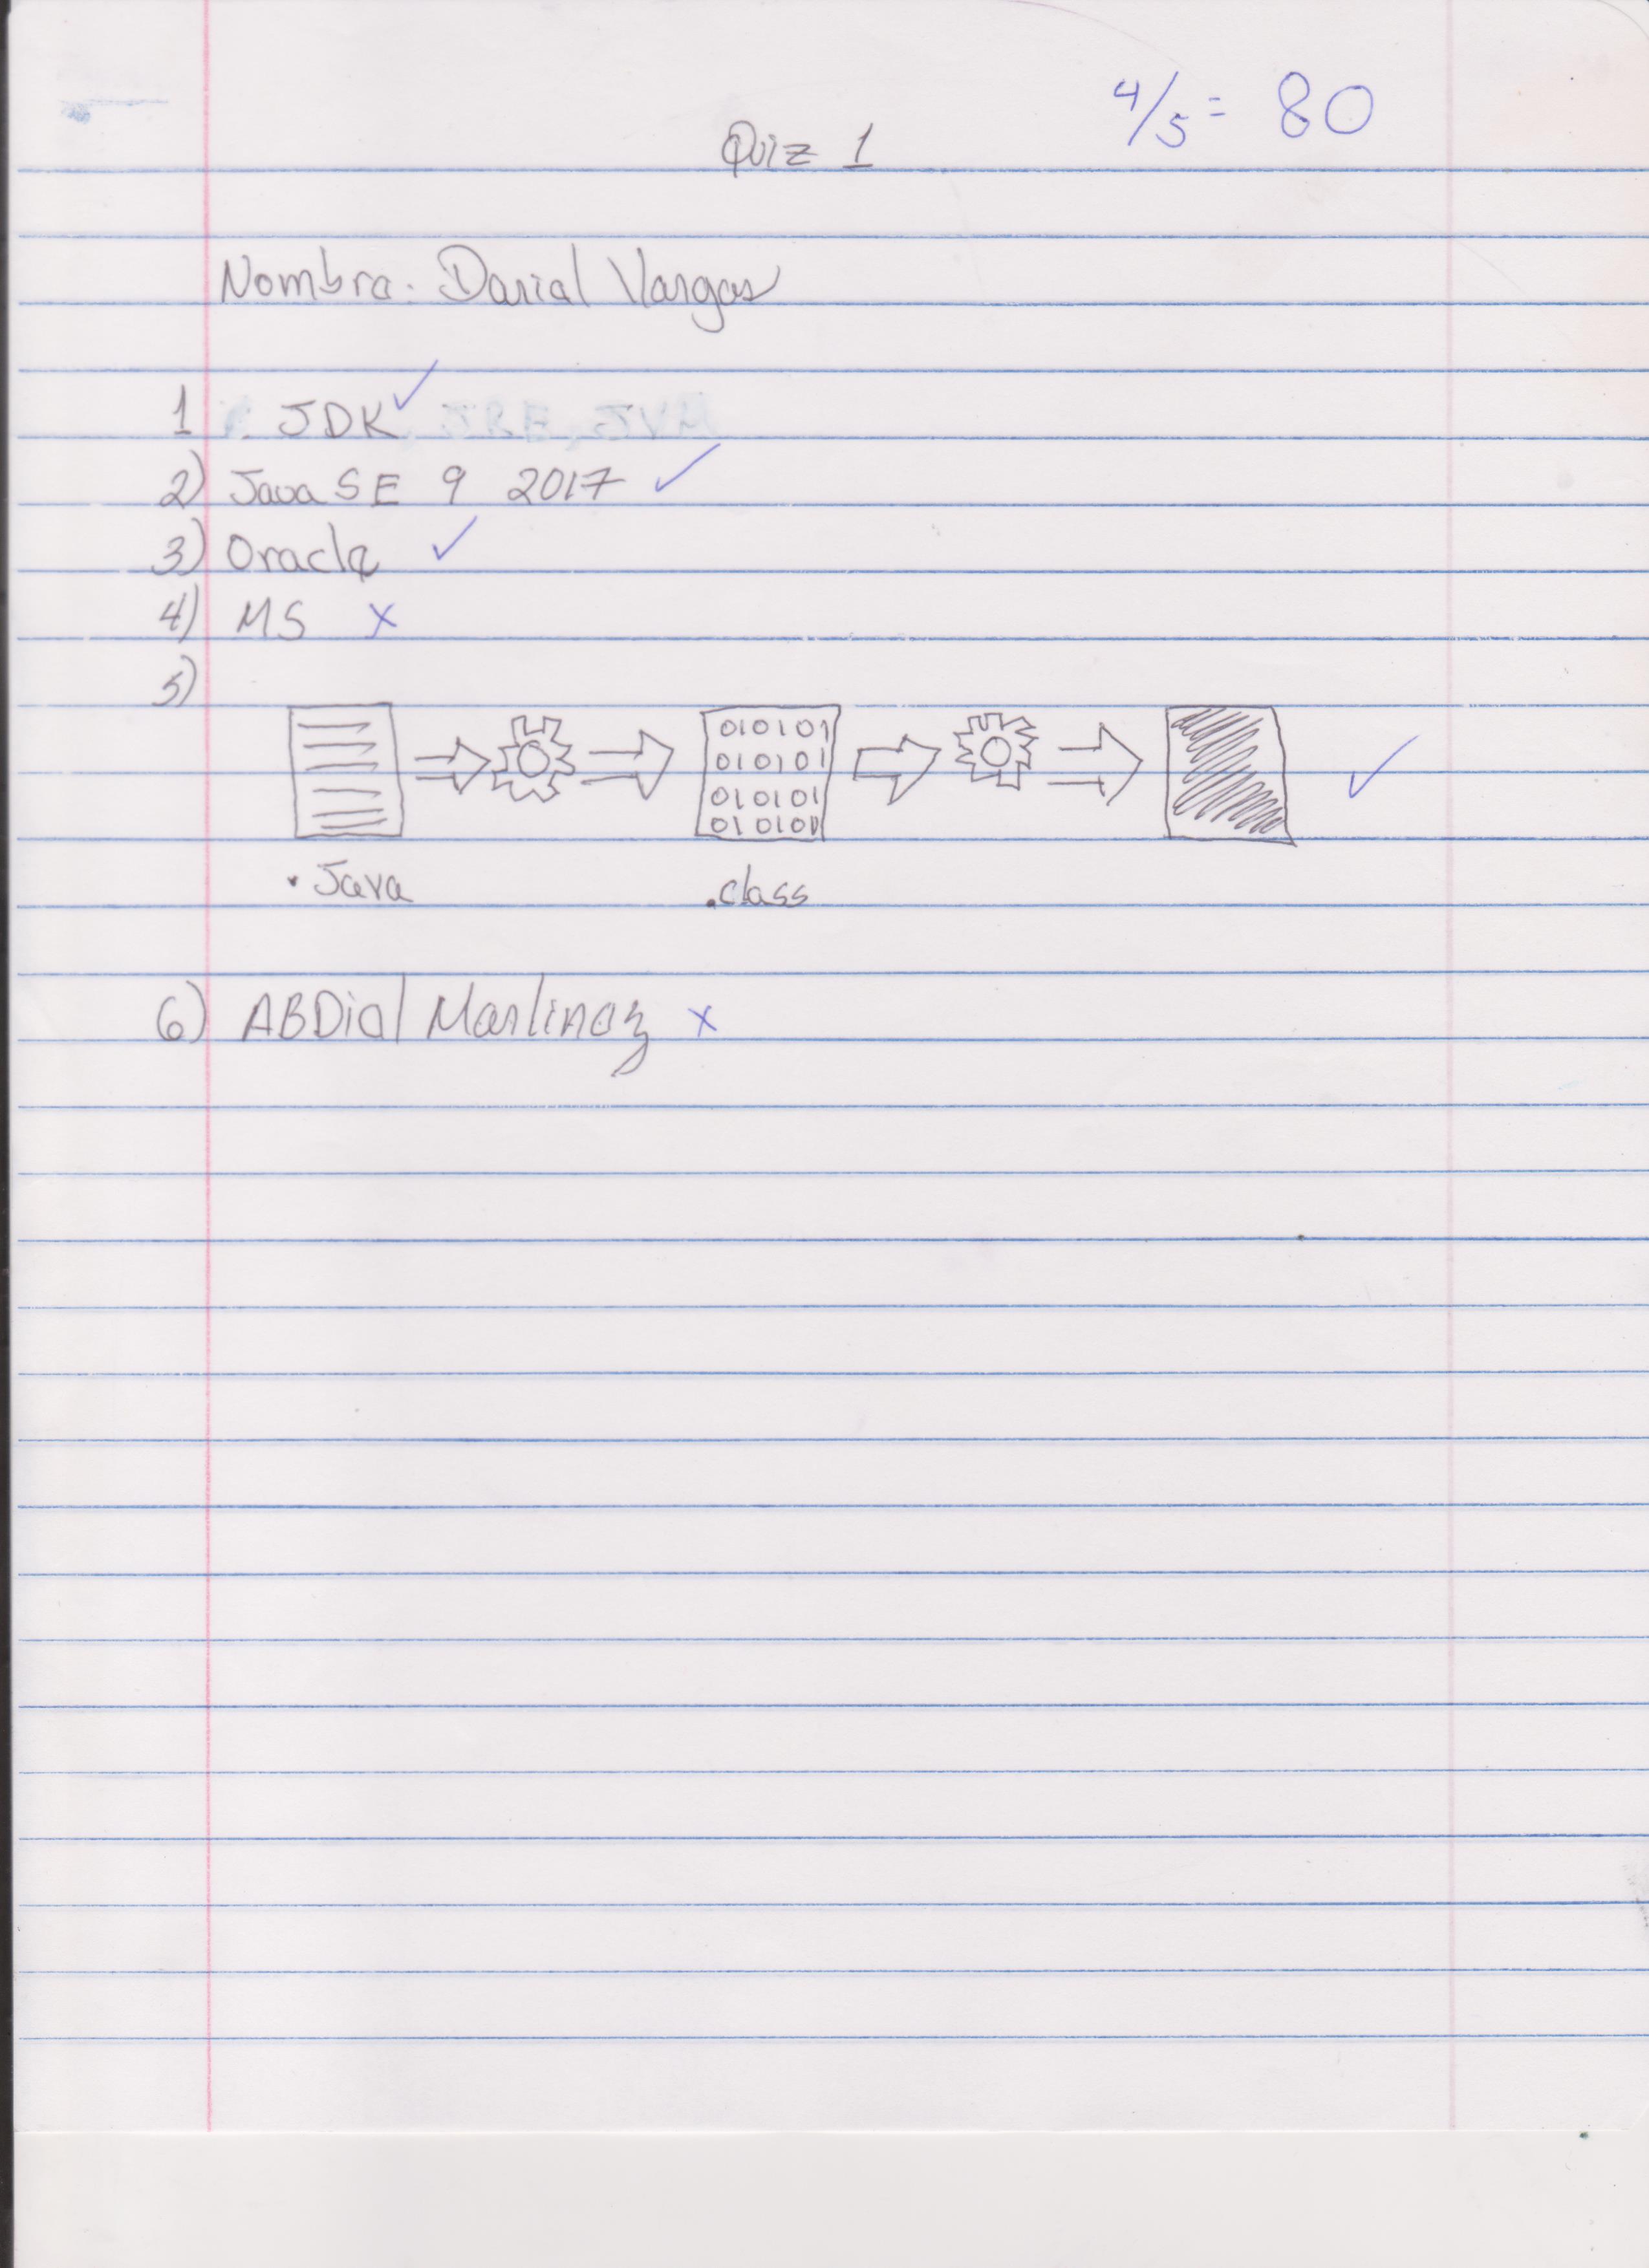 4/5 = 80
Quiz 1
Nombre: Dariel Vargas
1 JDK
2) Java SE 9 2017
3) Oracle
4) MS
5)
010101
010101
010101
010101
.Java
.class
6) ABDiel Martinez